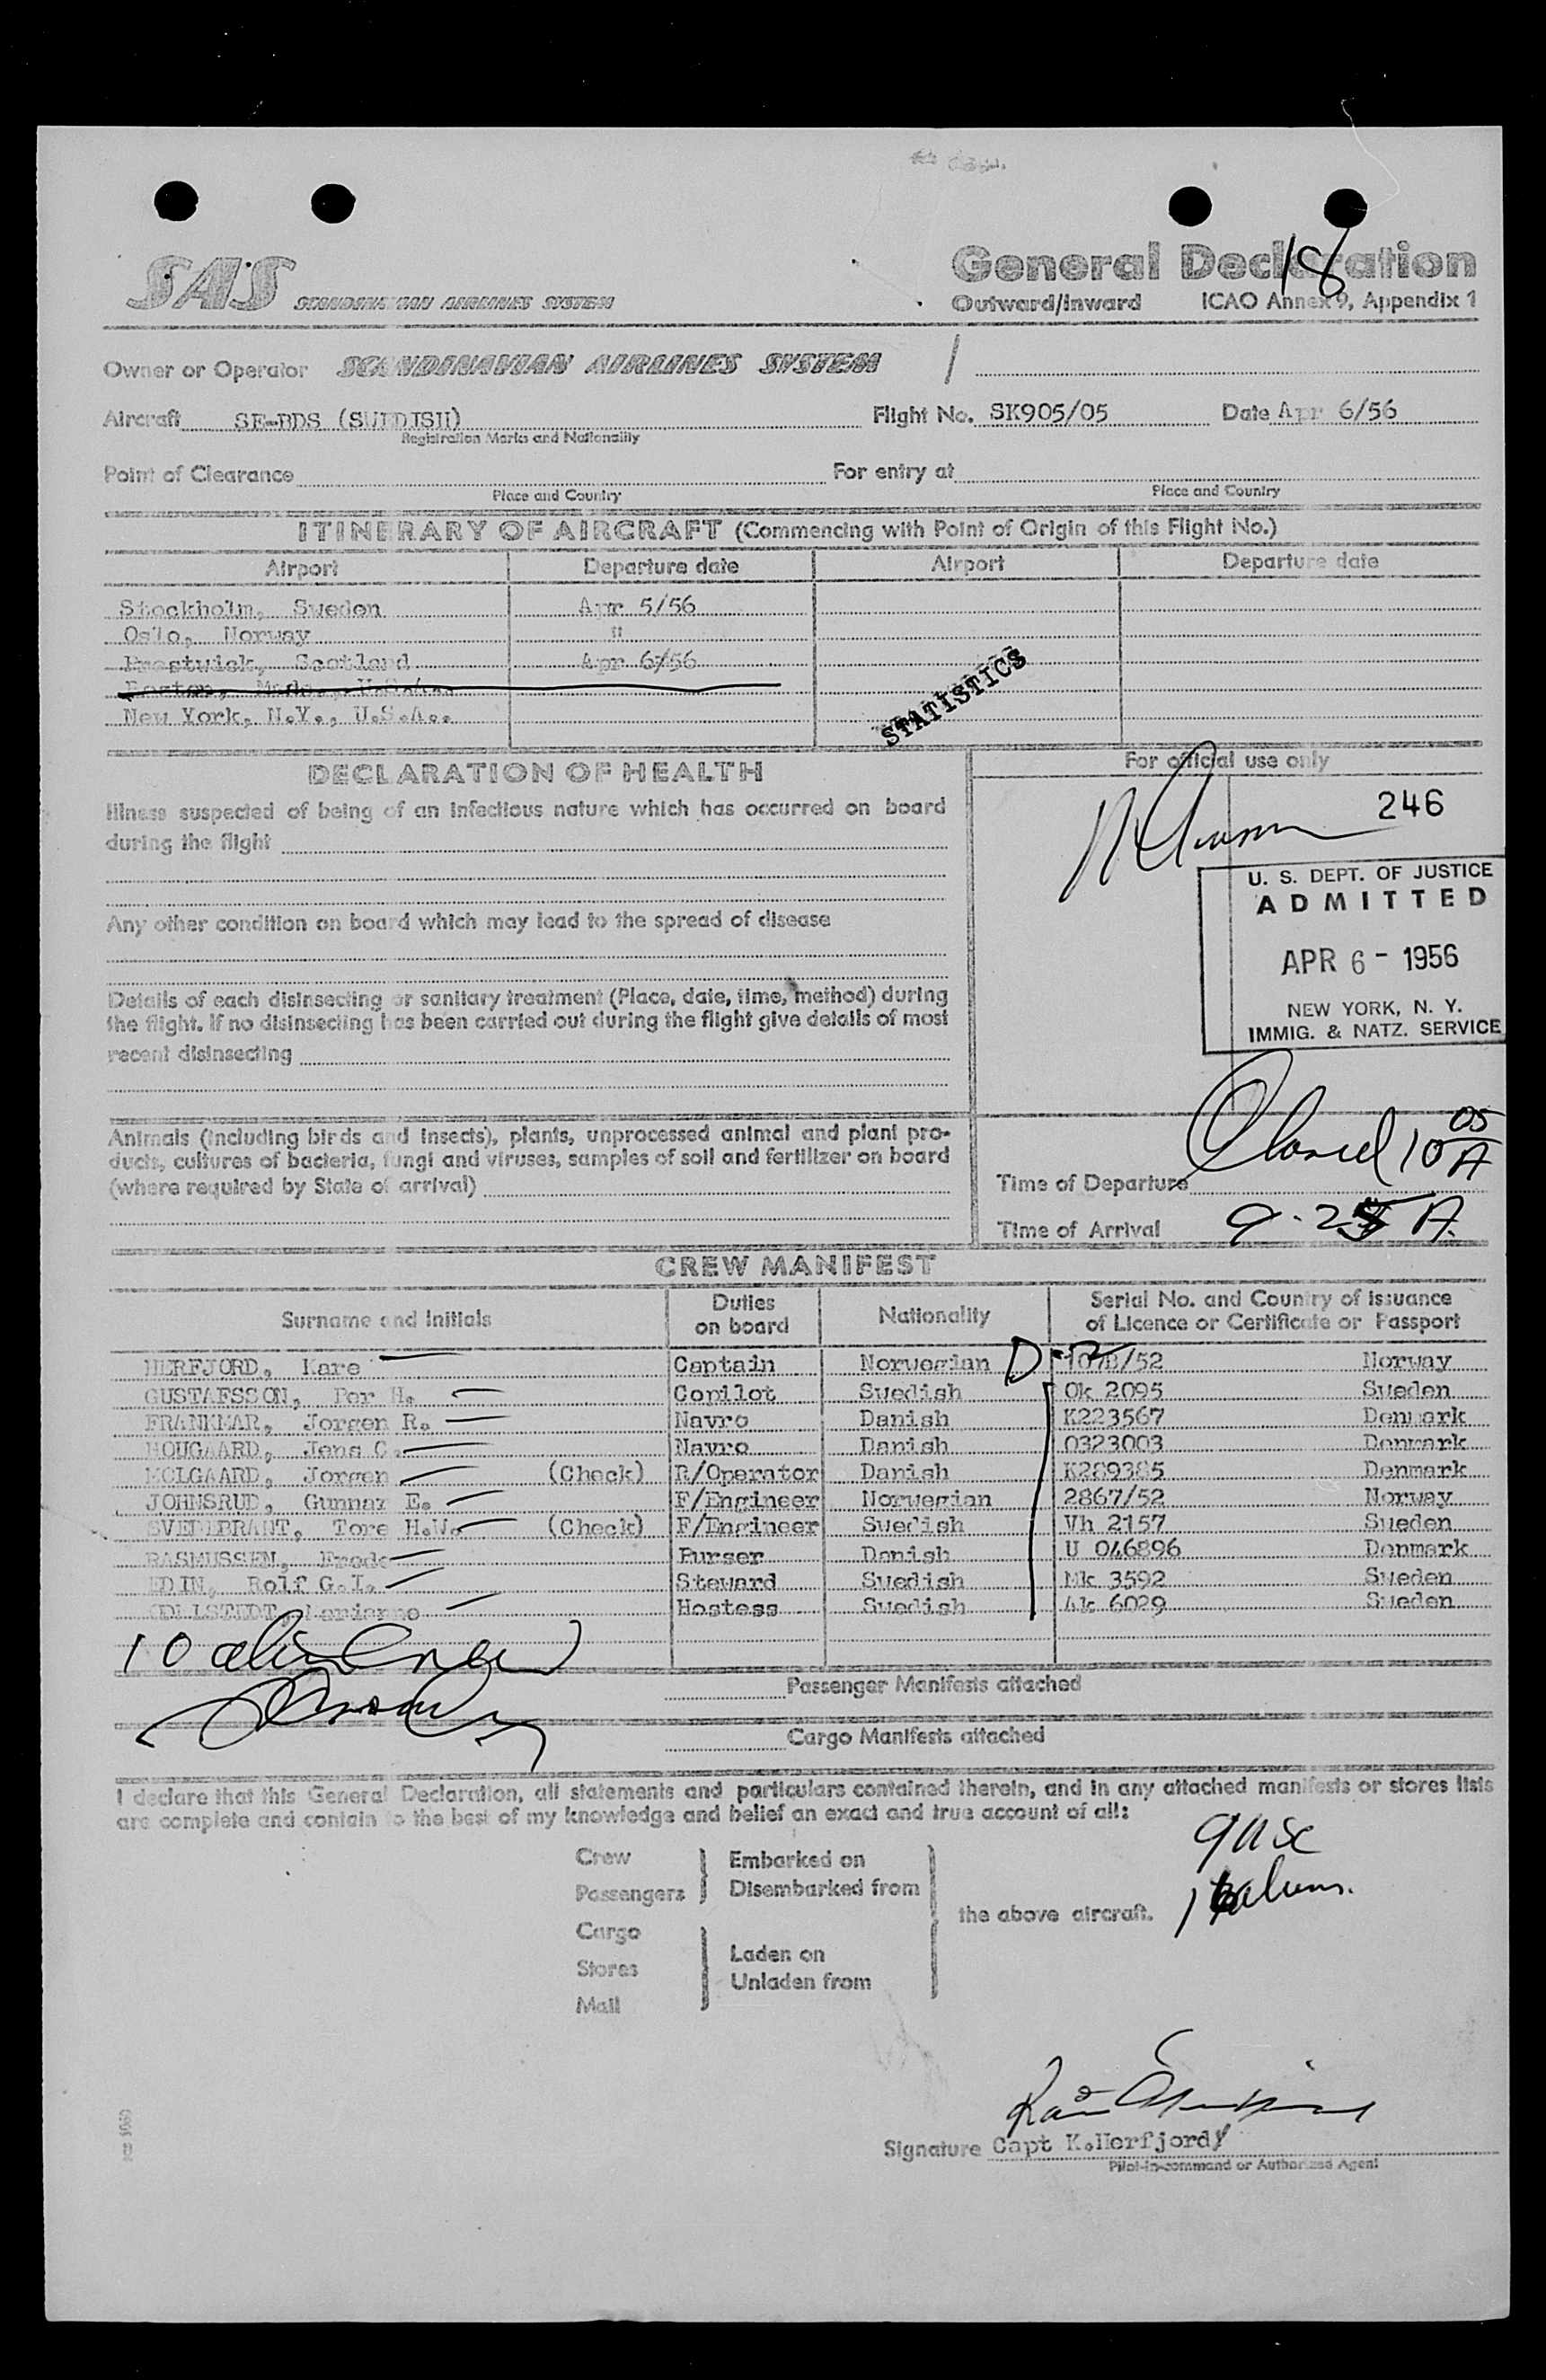 18
SAS SCANDINAVIAN AIRLINES SYSTEM
General Declaration
Outward/Inward ICAO Annex 9, Appendix 1
Owner or Operator SCANDINAVIAN AIRLINES SYSTEM
Aircraft SE-BDS (SWEDISH) Flight No. SK905/05 Date Apr 6/56
Registration Marks and Nationality
Point of Clearance For entry at
Place and Country Place and Country
ITINERARY OF AIRCRAFT (Commencing with Point of Origin of this Flight No.)
Airport Departure date Airport Departure date
Stockholm, Sweden Apr 5/56
Oslo, Norway "
Prestwick, Scotland Apr 6/56
Boston, Mass., U.S.A..
New York, N.Y., U.S.A..
STATISTICS
DECLARATION OF HEALTH
For official use only
Illness suspected of being of an infectious nature which has occurred on board
during the flight
246
U. S. DEPT. OF JUSTICE
ADMITTED
APR 6 - 1956
NEW YORK, N. Y.
IMMIG. & NATZ. SERVICE
Any other condition on board which may lead to the spread of disease
Details of each disinsecting or sanitary treatment (Place, date, time, method) during
the flight. If no disinsecting has been carried out during the flight give details of most
recent disinsecting
Animals (including birds and insects), plants, unprocessed animal and plant pro-
ducts, cultures of bacteria, fungi and viruses, samples of soil and fertilizer on board
(where required by State of arrival)
10 05 A
Time of Departure
Time of Arrival 9-25 A.
CREW MANIFEST
Surname and Initials Duties on board Nationality Serial No. and Country of Issuance of Licence or Certificate or Passport
HERFJORD, Kare Captain Norwegian D-2 /52 Norway
GUSTAFSSON, Per H. Copilot Swedish Ok 2095 Sweden
FRANKMAR, Jorgen R. Navro Danish K223567 Denmark
HOUGAARD, Jens C. Navro Danish 0323003 Denmark
HOLGAARD, Jorgen (Check) R/Operator Danish K289385 Denmark
JOHNSRUD, Gunnar E. F/Engineer Norwegian 2867/52 Norway
SVEDEBRANT, Tore H.W. (Check) F/Engineer Swedish Vh 2157 Sweden
RASMUSSEN, Frode Purser Danish U 046896 Denmark
EDIN, Rolf G.I. Steward Swedish Mk 3592 Sweden
Marianne Hostess Swedish Ak 6029 Sweden
10 alien Crew
Passenger Manifests attached
Cargo Manifests attached
I declare that this General Declaration, all statements and particulars contained therein, and in any attached manifests or stores lists
are complete and contain to the best of my knowledge and belief an exact and true account of all:
Crew Embarked on
Passengers Disembarked from
the above aircraft.
Cargo
Stores Laden on
Unladen from
Mail
Signature Capt K.Herfjord
Pilot-in-command or Authorized Agent